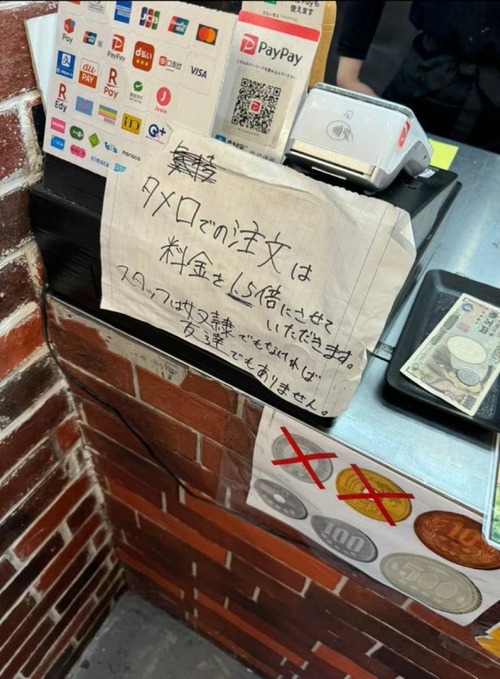 使えます
Pay
JCB
PayPay
d払い
VISA
au PAY
R Pay
Edy
iD
Q+
nimoca
PayPay
PayPay
タメ口での注文は
料金を1.5倍にさせて
いただきます。
スタッフは奴隷でもなければ
友達でもありません。
100
500